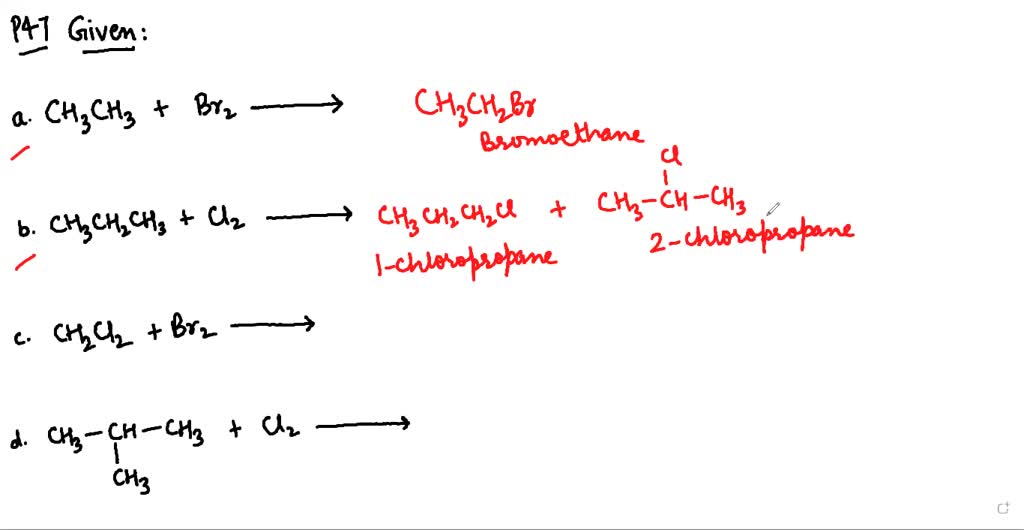 P47 Given:
a. CH₃CH₃ + Br₂ ⟶ CH₃CH₂Br
Bromoethane
Cl
b. CH₃CH₂CH₃ + Cl₂ ⟶ CH₃CH₂CH₂Cl + CH₃-CH-CH₃
1-chloropropane 2-chloropropane
c. CH₂Cl₂ + Br₂ ⟶
d. CH₃-CH-CH₃ + Cl₂ ⟶
CH₃